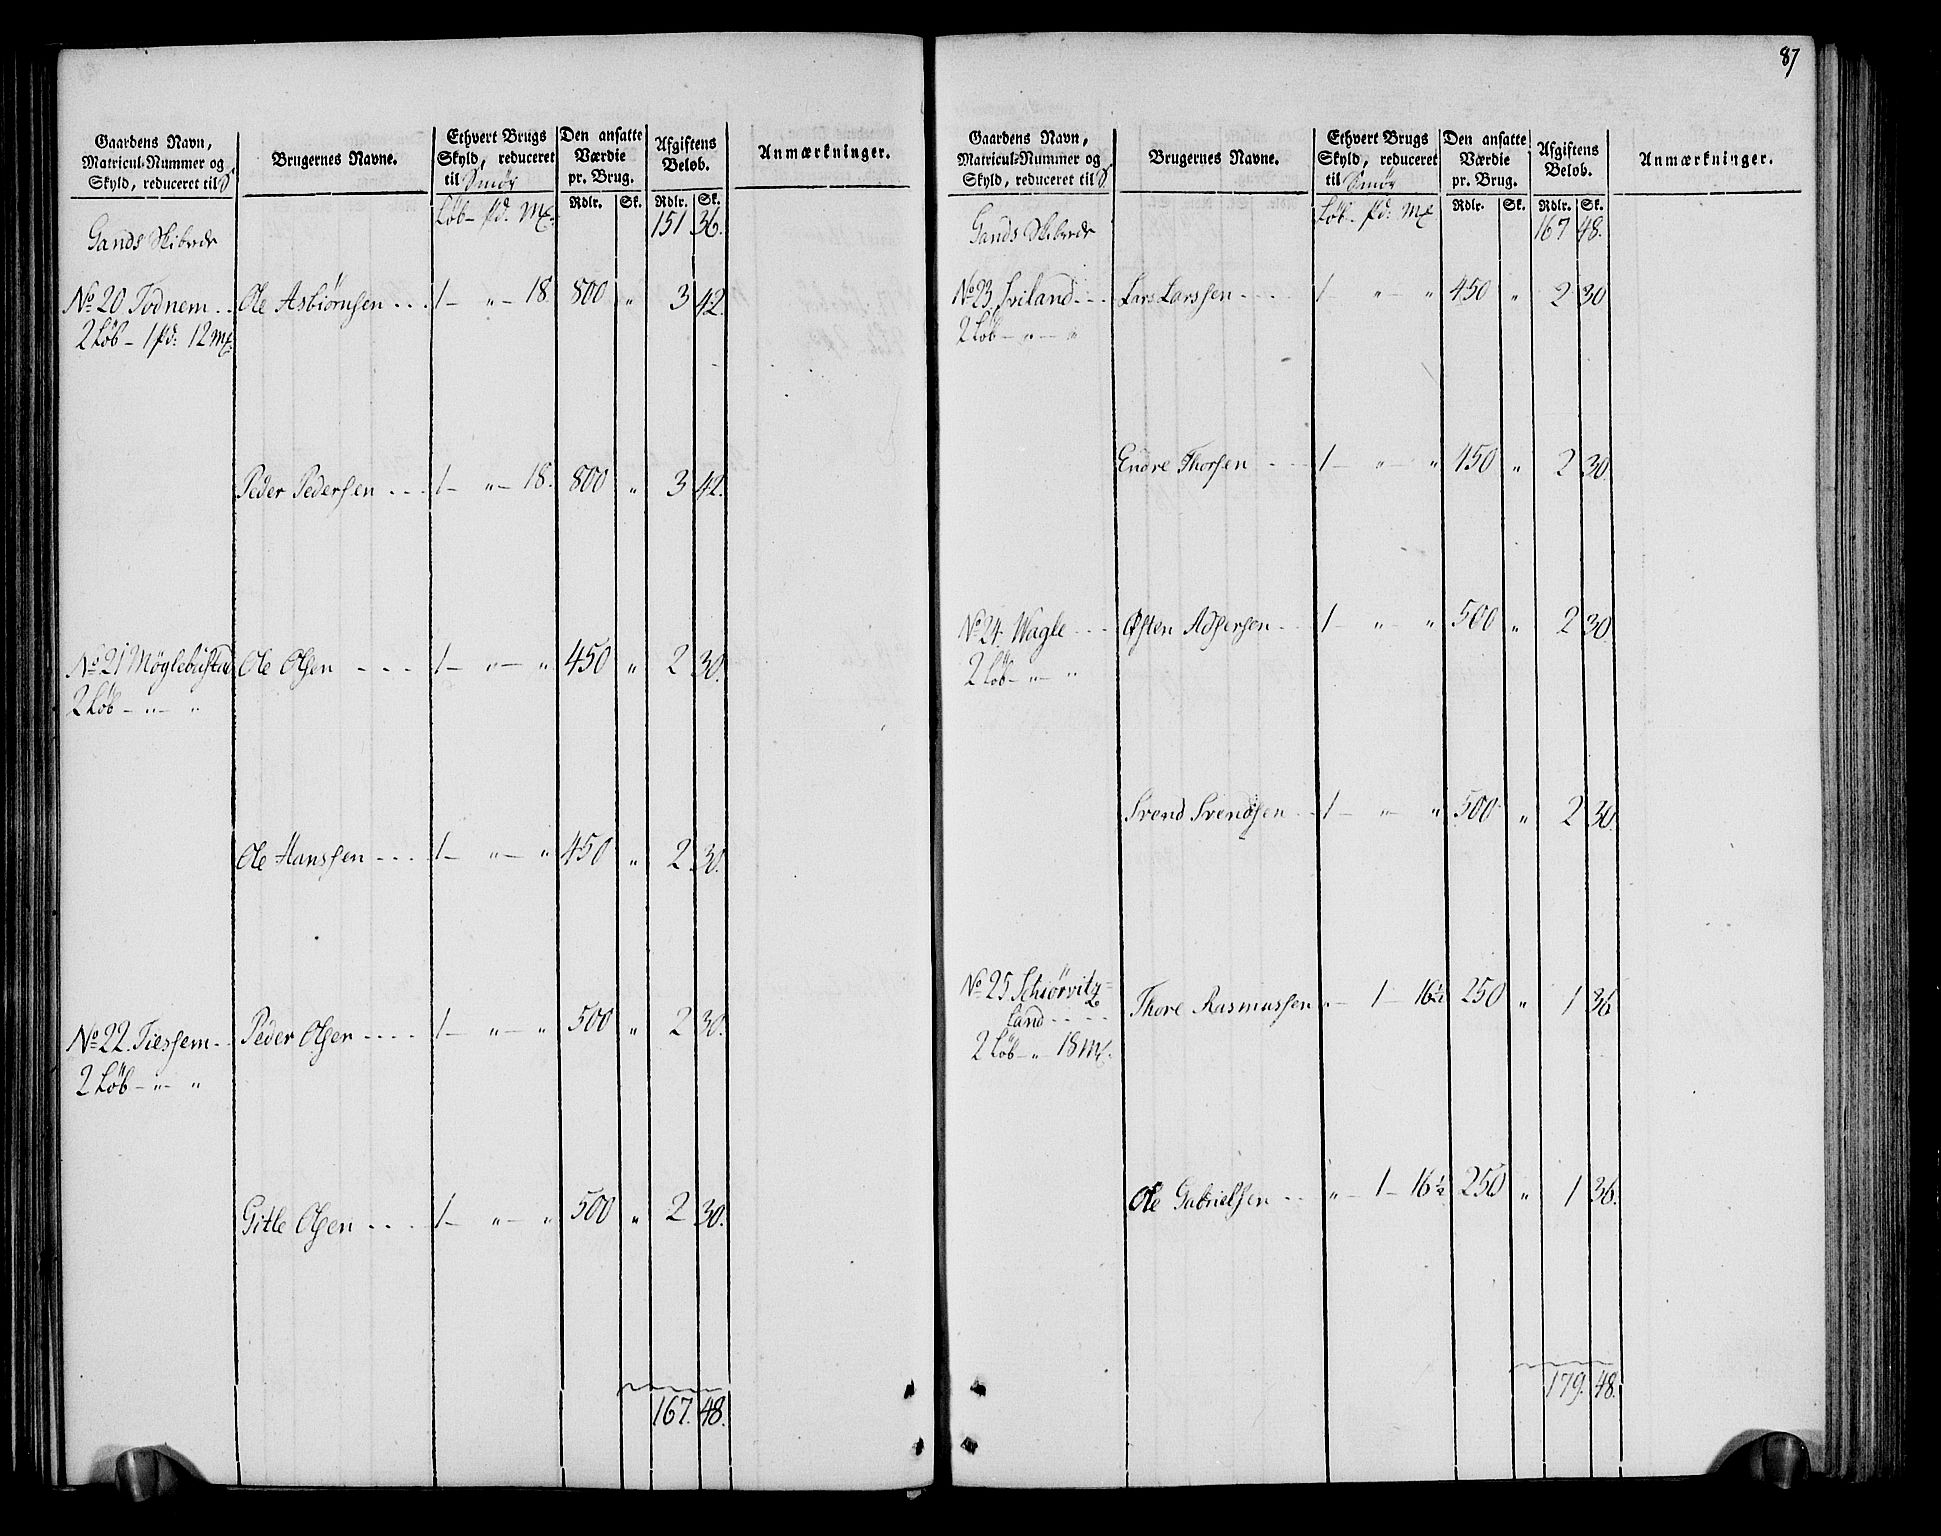 Gaardens Navn, Matricul-Nummer og Skyld, reduceret til S
Brugernes Navne.
Ethvert Brugs Skyld, reduceret til Smør
Den ansatte Værdie pr. Brug.
Afgiftens Beløb.
Anmærkninger.
Rdlr. Sk. Rdlr. Sk.
Gands Skibrede Løb - pd: Mk: 151 36.
No 20 Todnem . . Ole Asbiørnsen . . . 1 — „ — 18. 800 „ 3 42.
2 Løb — 1 pd: 12 Mk:
Peder Pedersen . . . 1 — „ — 18. 800 „ 3 42.
No 21 Møglebustad Ole Olsen - - - - 1 — „ — „ 450 „ 2 30.
2 Løb — „ — „
Ole Hanssen - - - 1 — „ — „ 450 „ 2 30.
No 22. Tiessem . . Peder Olsen - - - - 1 — „ — „ 500 „ 2 30.
2 Løb — „ — „
Gitle Olsen . . . . 1 — „ — „ 500 „ 2 30.
167. 48.
87
Gaardens Navn, Matricul-Nummer og Skyld, reduceret til S.
Brugernes Navne.
Ethvert Brugs Skyld, reduceret til Smør
Den ansatte Værdie pr. Brug.
Afgiftens Beløb.
Anmærkninger.
Rdlr. Sk. Rdlr. Sk.
Gands Skibrede Løb - pd: Mk 167 48.
No 23 Sviland - - - Lars Larssen - - - - 1 — „ — „ 450 „ 2 30
2 Løb — „ — „
Endre Thorsen - - - - 1 — „ — „ 450 „ 2 30.
No 24. Wagle - - - Østen Adsersen - - 1 — „ — „ 500 „ 2 30.
2 Løb — „ — „
Svend Svendsen - - 1 — „ — „ 500 „ 2 30.
No 25 Schiørvitz=
land - - - - Thore Rasmussen „ — 1 — 16½ 250 „ 1 36
2 Løb — „ 18 Mk.
Ole Gabrielsen - - „ — 1 — 16½ 250 „ 1 36.
179. 48.